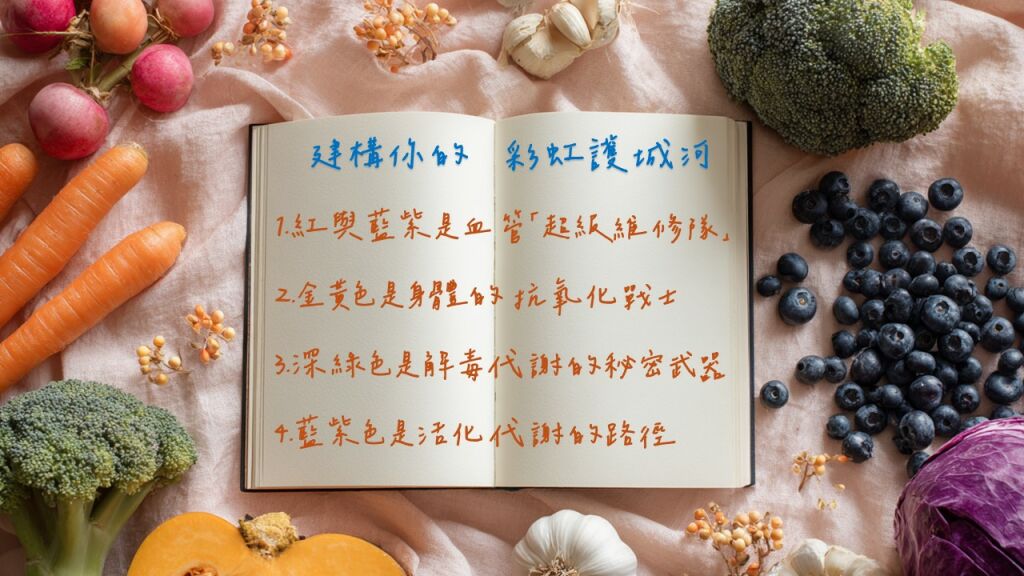 建構你的 彩虹護城河
1.紅與藍紫是血管「超級維修隊」
2.金黃色是身體的抗氧化戰士
3.深綠色是解毒代謝的秘密武器
4.藍紫色是活化代謝的路徑